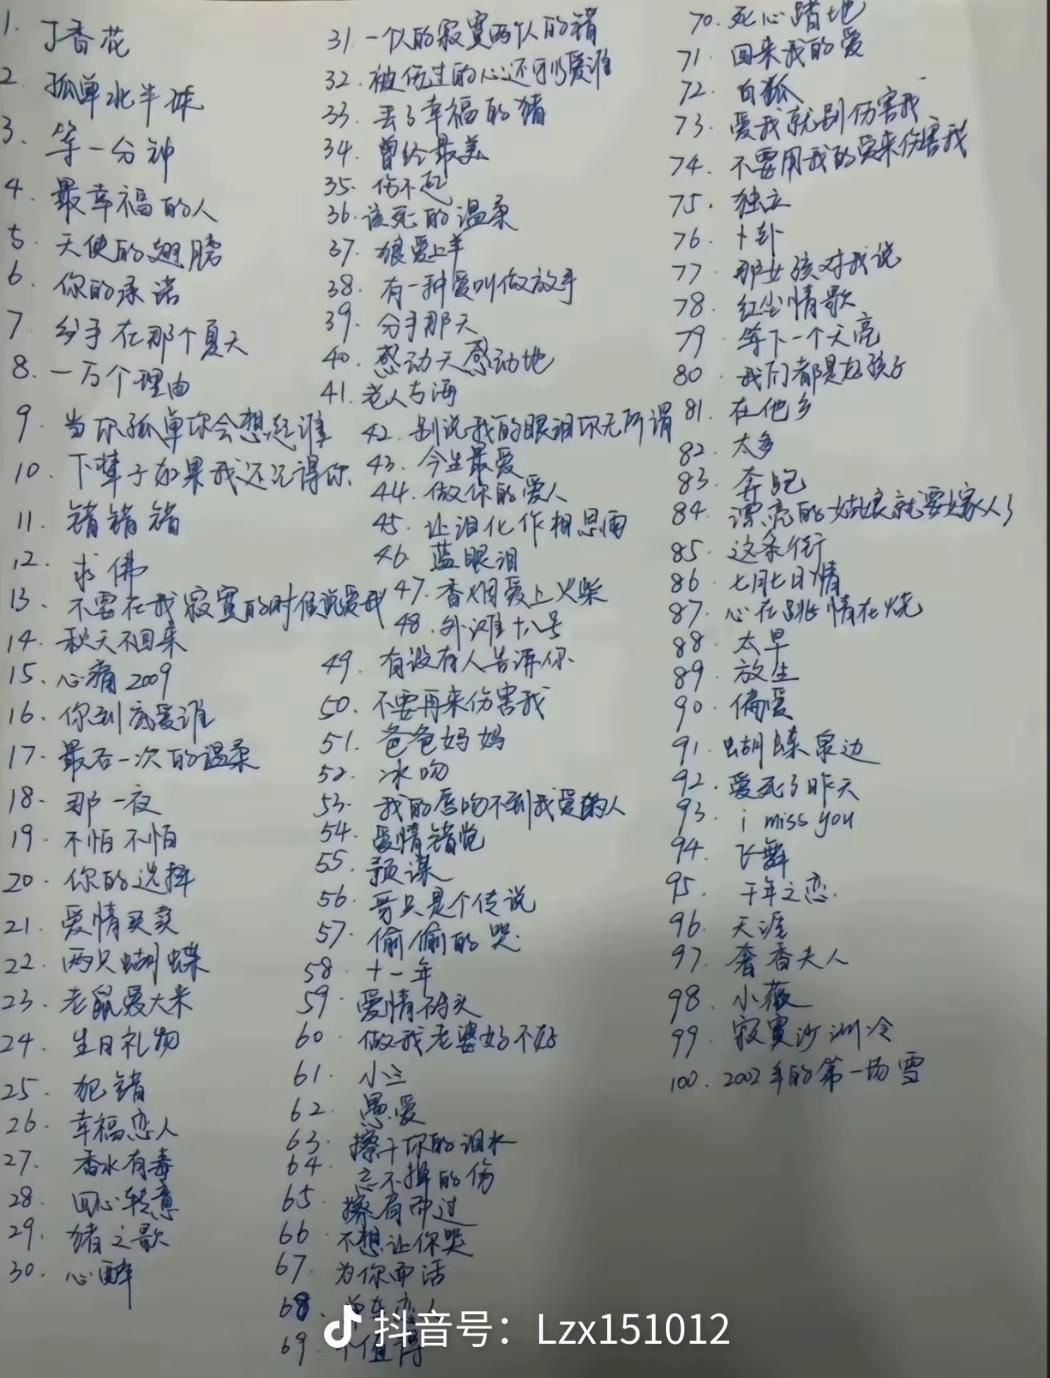 1. 丁香花
2. 孤单北半球
3. 等一分钟
4. 最幸福的人
5. 天使的翅膀
6. 你的承诺
7. 分手在那个夏天
8. 一万个理由
9. 当你孤单你会想起谁
10. 下辈子如果我还记得你
11. 错错错
12. 求佛
13. 不要在我寂寞的时候说爱我
14. 秋天不回来
15. 心痛2009
16. 你到底爱谁
17. 最后一次的温柔
18. 那一夜
19. 不怕不怕
20. 你的选择
21. 爱情买卖
22. 两只蝴蝶
23. 老鼠爱大米
24. 生日礼物
25. 犯错
26. 幸福恋人
27. 香水有毒
28. 回心转意
29. 猪之歌
30. 心醉
31. 一个人的寂寞两个人的错
32. 被伤过的心还可以爱谁
33. 丢了幸福的猪
34. 曾经最美
35. 伤不起
36. 该死的温柔
37. 狼爱上羊
38. 有一种爱叫做放手
39. 分手那天
40. 感动天感动地
41. 老人与海
42. 别说我的眼泪你无所谓
43. 今生最爱
44. 做你的爱人
45. 让泪化作相思雨
46. 蓝眼泪
47. 香烟爱上火柴
48. 外滩十八号
49. 有没有人告诉你
50. 不要再来伤害我
51. 爸爸妈妈
52. 冰吻
53. 我的唇吻不到我爱的人
54. 爱情错觉
55. 预谋
56. 哥只是个传说
57. 偷偷的哭
58. 十一年
59. 爱情码头
60. 做我老婆好不好
61. 小三
62. 愚爱
63. 擦干你的泪水
64. 忘不掉的伤
65. 擦肩而过
66. 不想让你哭
67. 为你而活
68. 单车恋人
69. 不值得
70. 死心踏地
71. 回来我的爱
72. 白狐
73. 爱我就别伤害我
74. 不要用我的爱来伤害我
75. 独立
76. 卜卦
77. 那女孩对我说
78. 红尘情歌
79. 等下一个天亮
80. 我们都是好孩子
81. 在他乡
82. 太多
83. 奔跑
84. 漂亮的姑娘就要嫁人了
85. 这条街
86. 七月七日情
87. 心在跳情在烧
88. 太早
89. 放生
90. 偏爱
91. 蝴蝶泉边
92. 爱死了昨天
93. i miss you
94. 飞舞
95. 千年之恋
96. 天涯
97. 奢香夫人
98. 小薇
99. 寂寞沙洲冷
100. 2002年的第一场雪
抖音号：Lzx151012